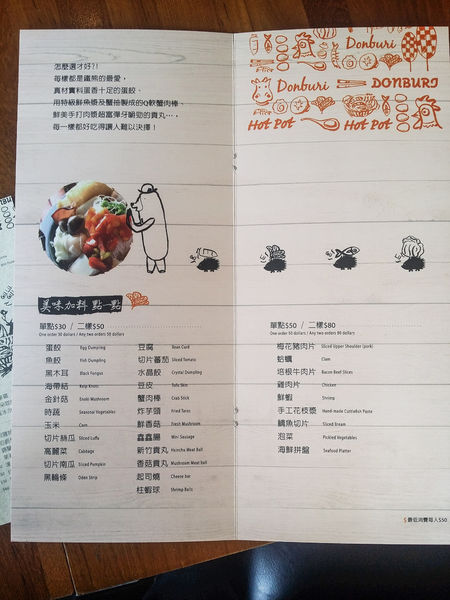 怎麼選才好?!
每樣都是鐵熊的最愛,
真材實料蛋香十足的蛋餃、
用特級鮮魚漿及蟹抽製成的Q軟蟹肉棒、
鮮美手打肉漿超富彈牙嚼勁的貢丸…,
每一樣都好吃得讓人難以決擇！
Donburi
Donburi
DONBURI
Hot Pot
Hot Pot
美味加料 點一點
單點$30 / 二樣$50
One order 30 dollars / Any two orders 50 dollars
蛋餃 Egg Dumpling
魚餃 Fish Dumpling
黑木耳 Black Fungus
海帶結 Kelp Knots
金針菇 Enoki Mushroom
時蔬 Seasonal Vegetables
玉米 Corn
切片絲瓜 Sliced Luffa
高麗菜 Cabbage
切片南瓜 Sliced Pumpkin
黑輪條 Oden Strip
豆腐 Bean Curd
切片蕃茄 Sliced Tomato
水晶餃 Crystal Dumpling
豆皮 Tofu Skin
蟹肉棒 Crab Stick
炸芋頭 Fried Taros
鮮香菇 Fresh Mushroom
鑫鑫腸 Mini Sausage
新竹貢丸 Hsinchu Meat Ball
香菇貢丸 Mushroom Meat Ball
起司燒 Cheese bar
柱蝦球 Shrimp Balls
單點$50 / 二樣$80
One order 50 dollars / Any two orders 80 dollars
梅花豬肉片 Sliced Upper Shoulder (pork)
蛤蠣 Clam
培根牛肉片 Bacon Beef Slices
雞肉片 Chicken
鮮蝦 Shrimp
手工花枝漿 Hand-made Cuttlefish Paste
鯛魚切片 Sliced Bream
泡菜 Pickled Vegetables
海鮮拼盤 Seafood Platter
$最低消費每人$50